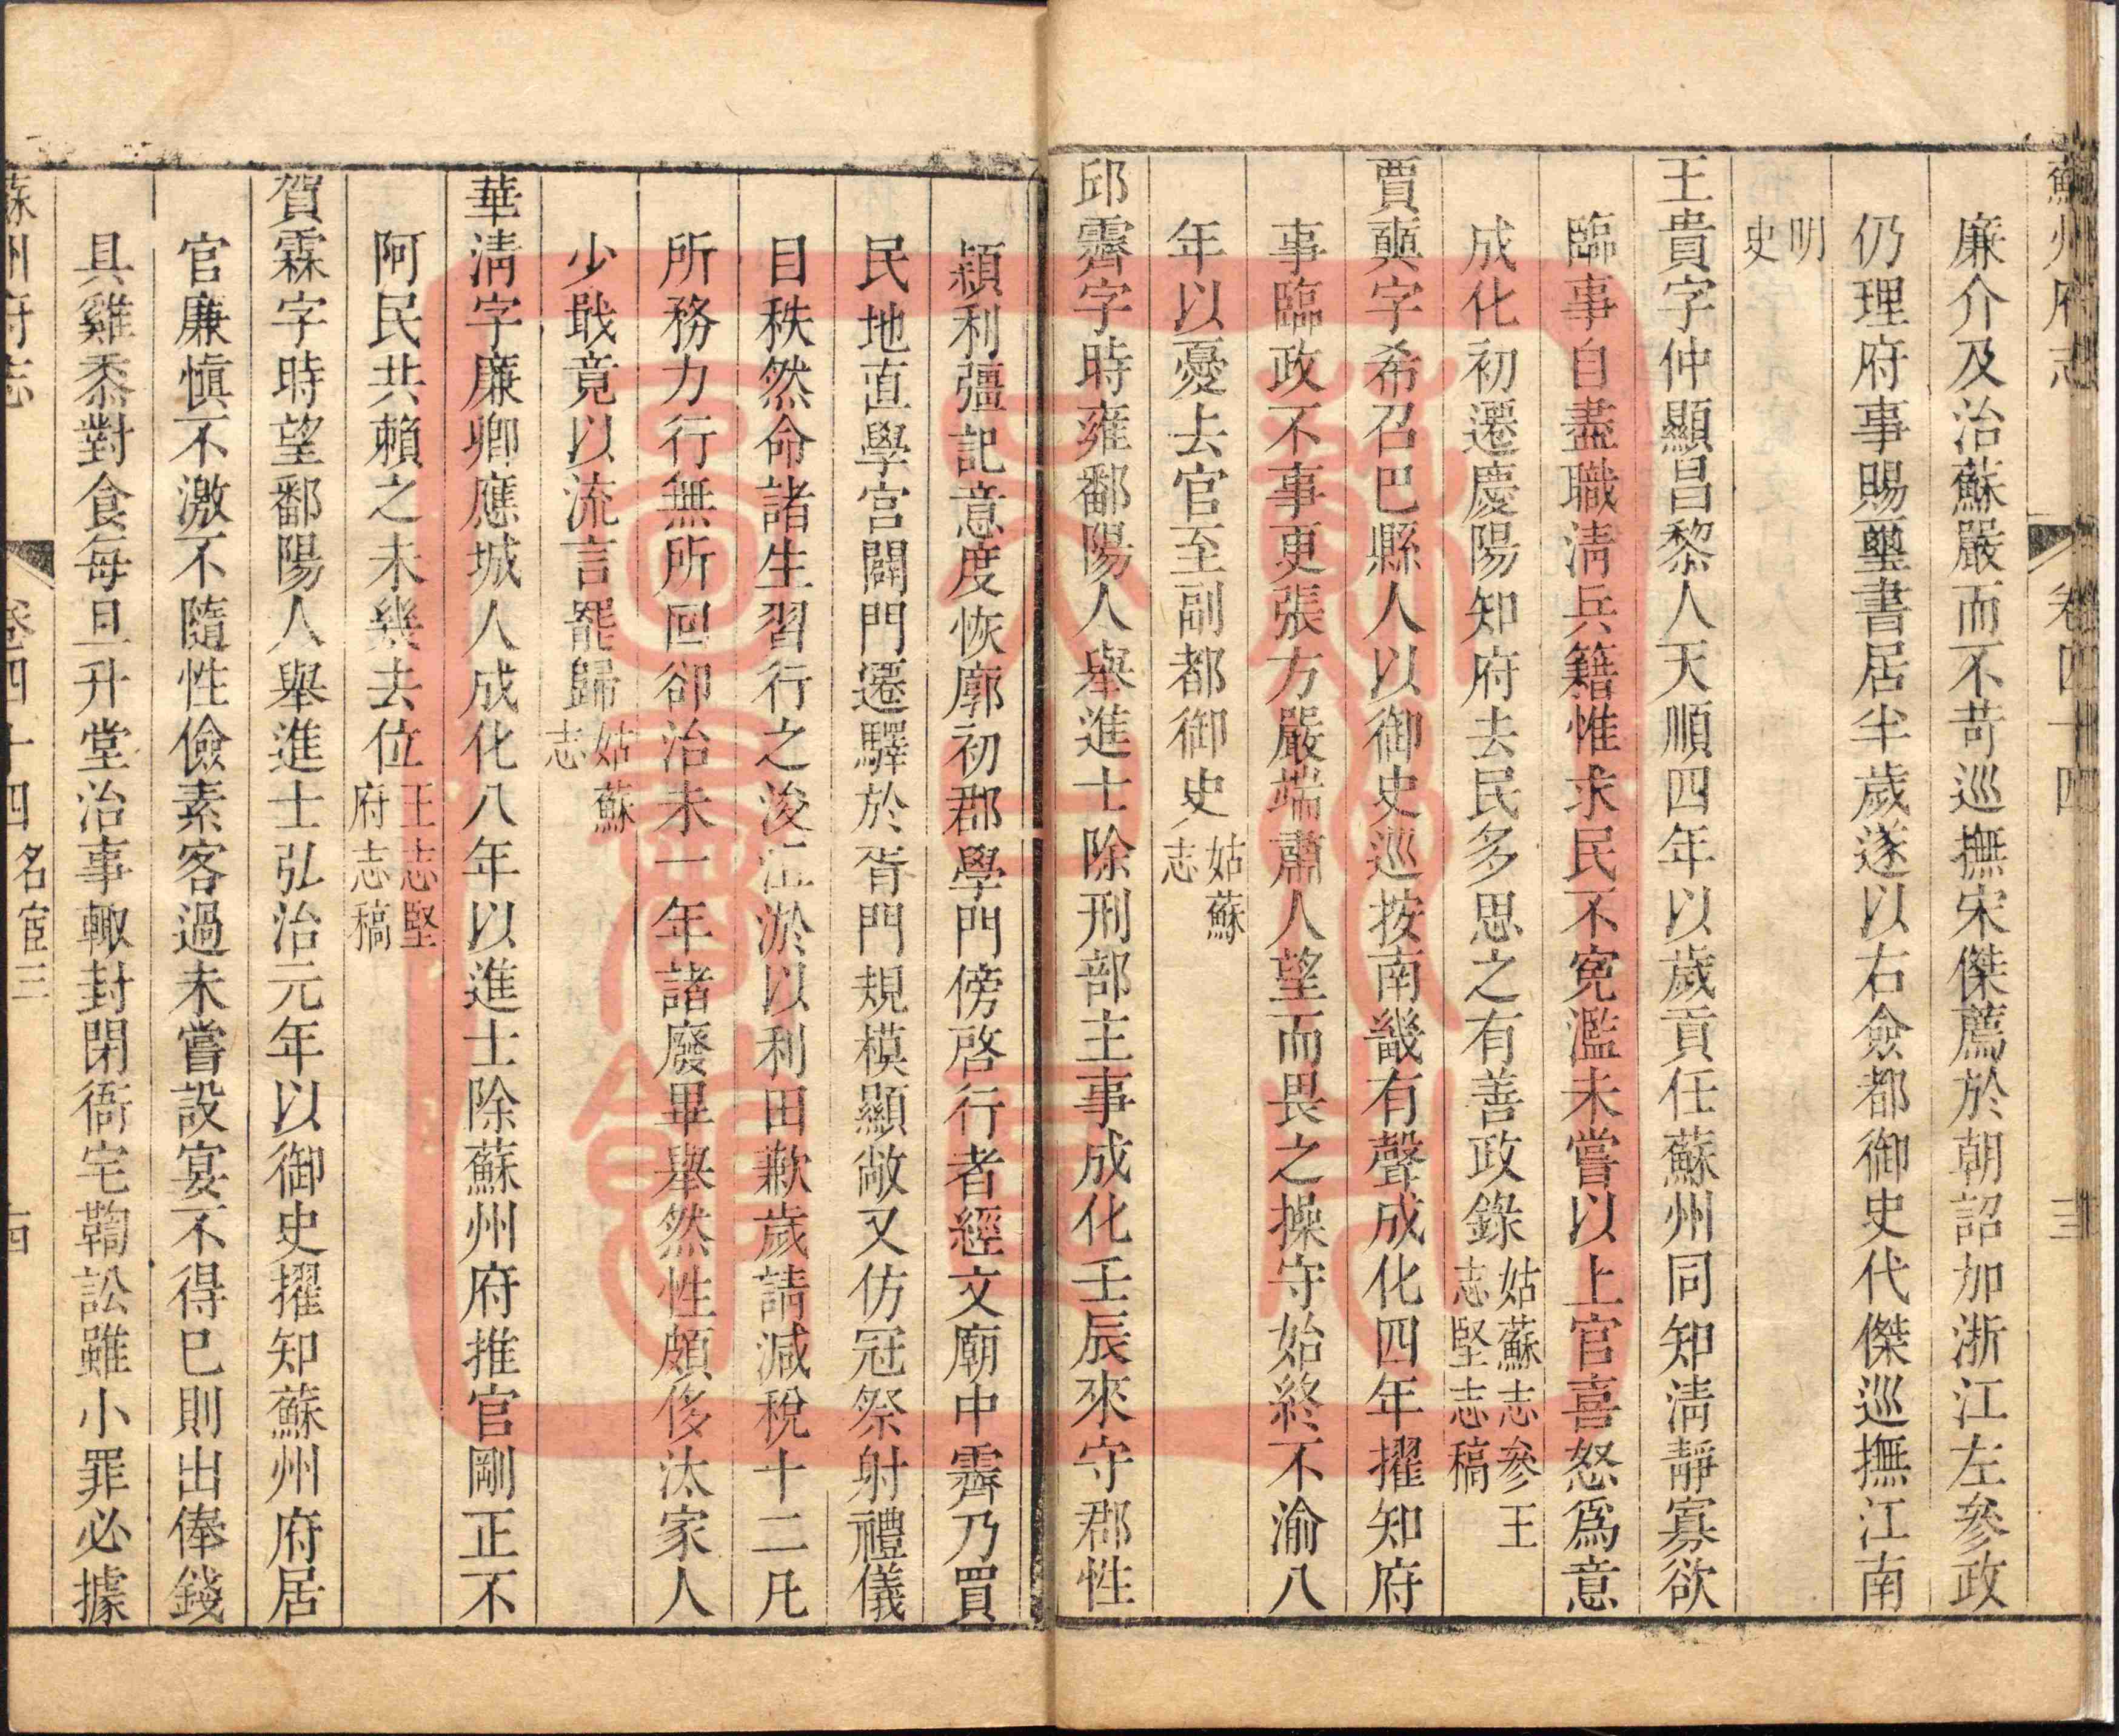 蘇州府志 卷四十四 三
廉介及治蘇嚴而不苛巡撫宋傑薦於朝詔加浙江左參政
仍理府事賜璽書居半歲遂以右僉都御史代傑巡撫江南
明史
王貴字仲顯昌黎人天順四年以歲貢任蘇州同知淸靜寡欲
臨事自盡職淸兵籍惟求民不寃濫未嘗以上官喜怒爲意
成化初遷慶陽知府去民多思之有善政錄姑蘇志參王志堅志稿
賈奭字希召巴縣人以御史巡按南畿有聲成化四年擢知府
事臨政不事更張方嚴端肅人望而畏之操守始終不渝八
年以憂去官至副都御史姑蘇志
邱霽字時雍鄱陽人舉進士除刑部主事成化壬辰來守郡性
穎利彊記意度恢廓初郡學門傍啓行者經文廟中霽乃買
民地直學宮闢門遷驛於胥門規模顯敞又仿冠祭射禮儀
目秩然命諸生習行之浚江淤以利田歉歲請減稅十二凡
所務力行無所回卻治未一年諸廢畢舉然性頗侈汰家人
少戢竟以流言罷歸姑蘇志
華淸字廉卿應城人成化八年以進士除蘇州府推官剛正不
阿民共賴之未幾去位王志堅府志稿
賀霖字時望鄱陽人舉進士弘治元年以御史擢知蘇州府居
官廉愼不激不隨性儉素客過未嘗設宴不得已則出俸錢
具雞黍對食每旦升堂治事輒封閉衙宅鞫訟雖小罪必據
蘇州府志 卷四十四 名宦三 四